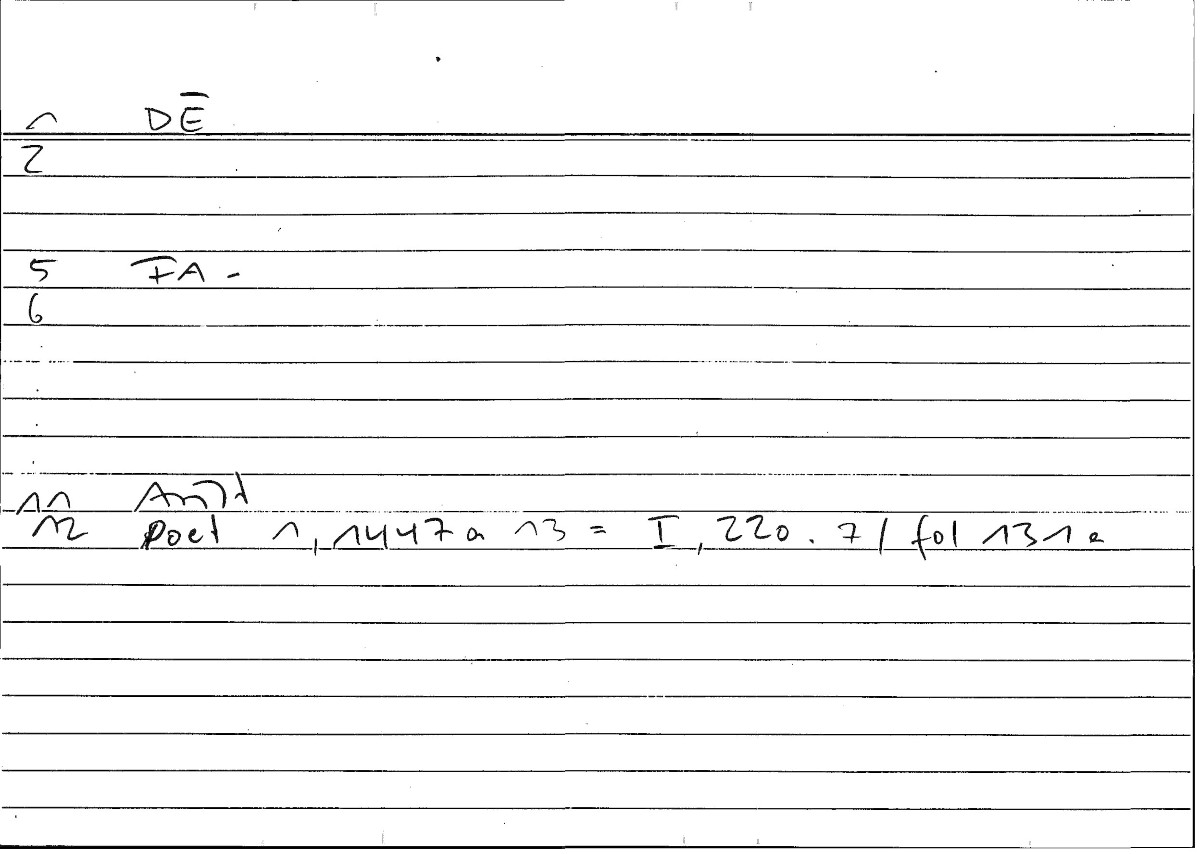 1 DĒ
2
5 FA -
6
.
.
.
.
11
12 Poet 1, 1447a 13 = I, 220.7 / fol 131a